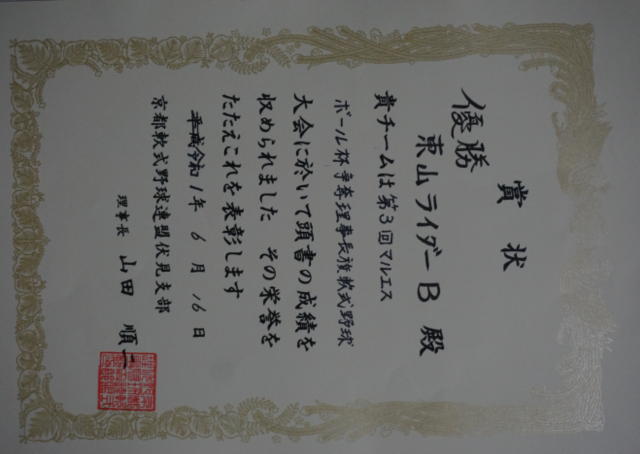 賞状
優勝
東山ライダーB殿
貴チームは第3回マルエス
ボール杯争奪理事長旗軟式野球
大会に於いて頭書の成績を
収められました その栄誉を
たたえこれを表彰します
平成令和1年6月16日
京都軟式野球連盟伏見支部
理事長 山田 順一